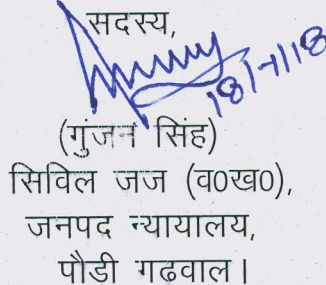 सदस्य,
18/1/18
(गुंजन सिंह)
सिविल जज (व0ख0),
जनपद न्यायालय,
पौडी गढवाल।